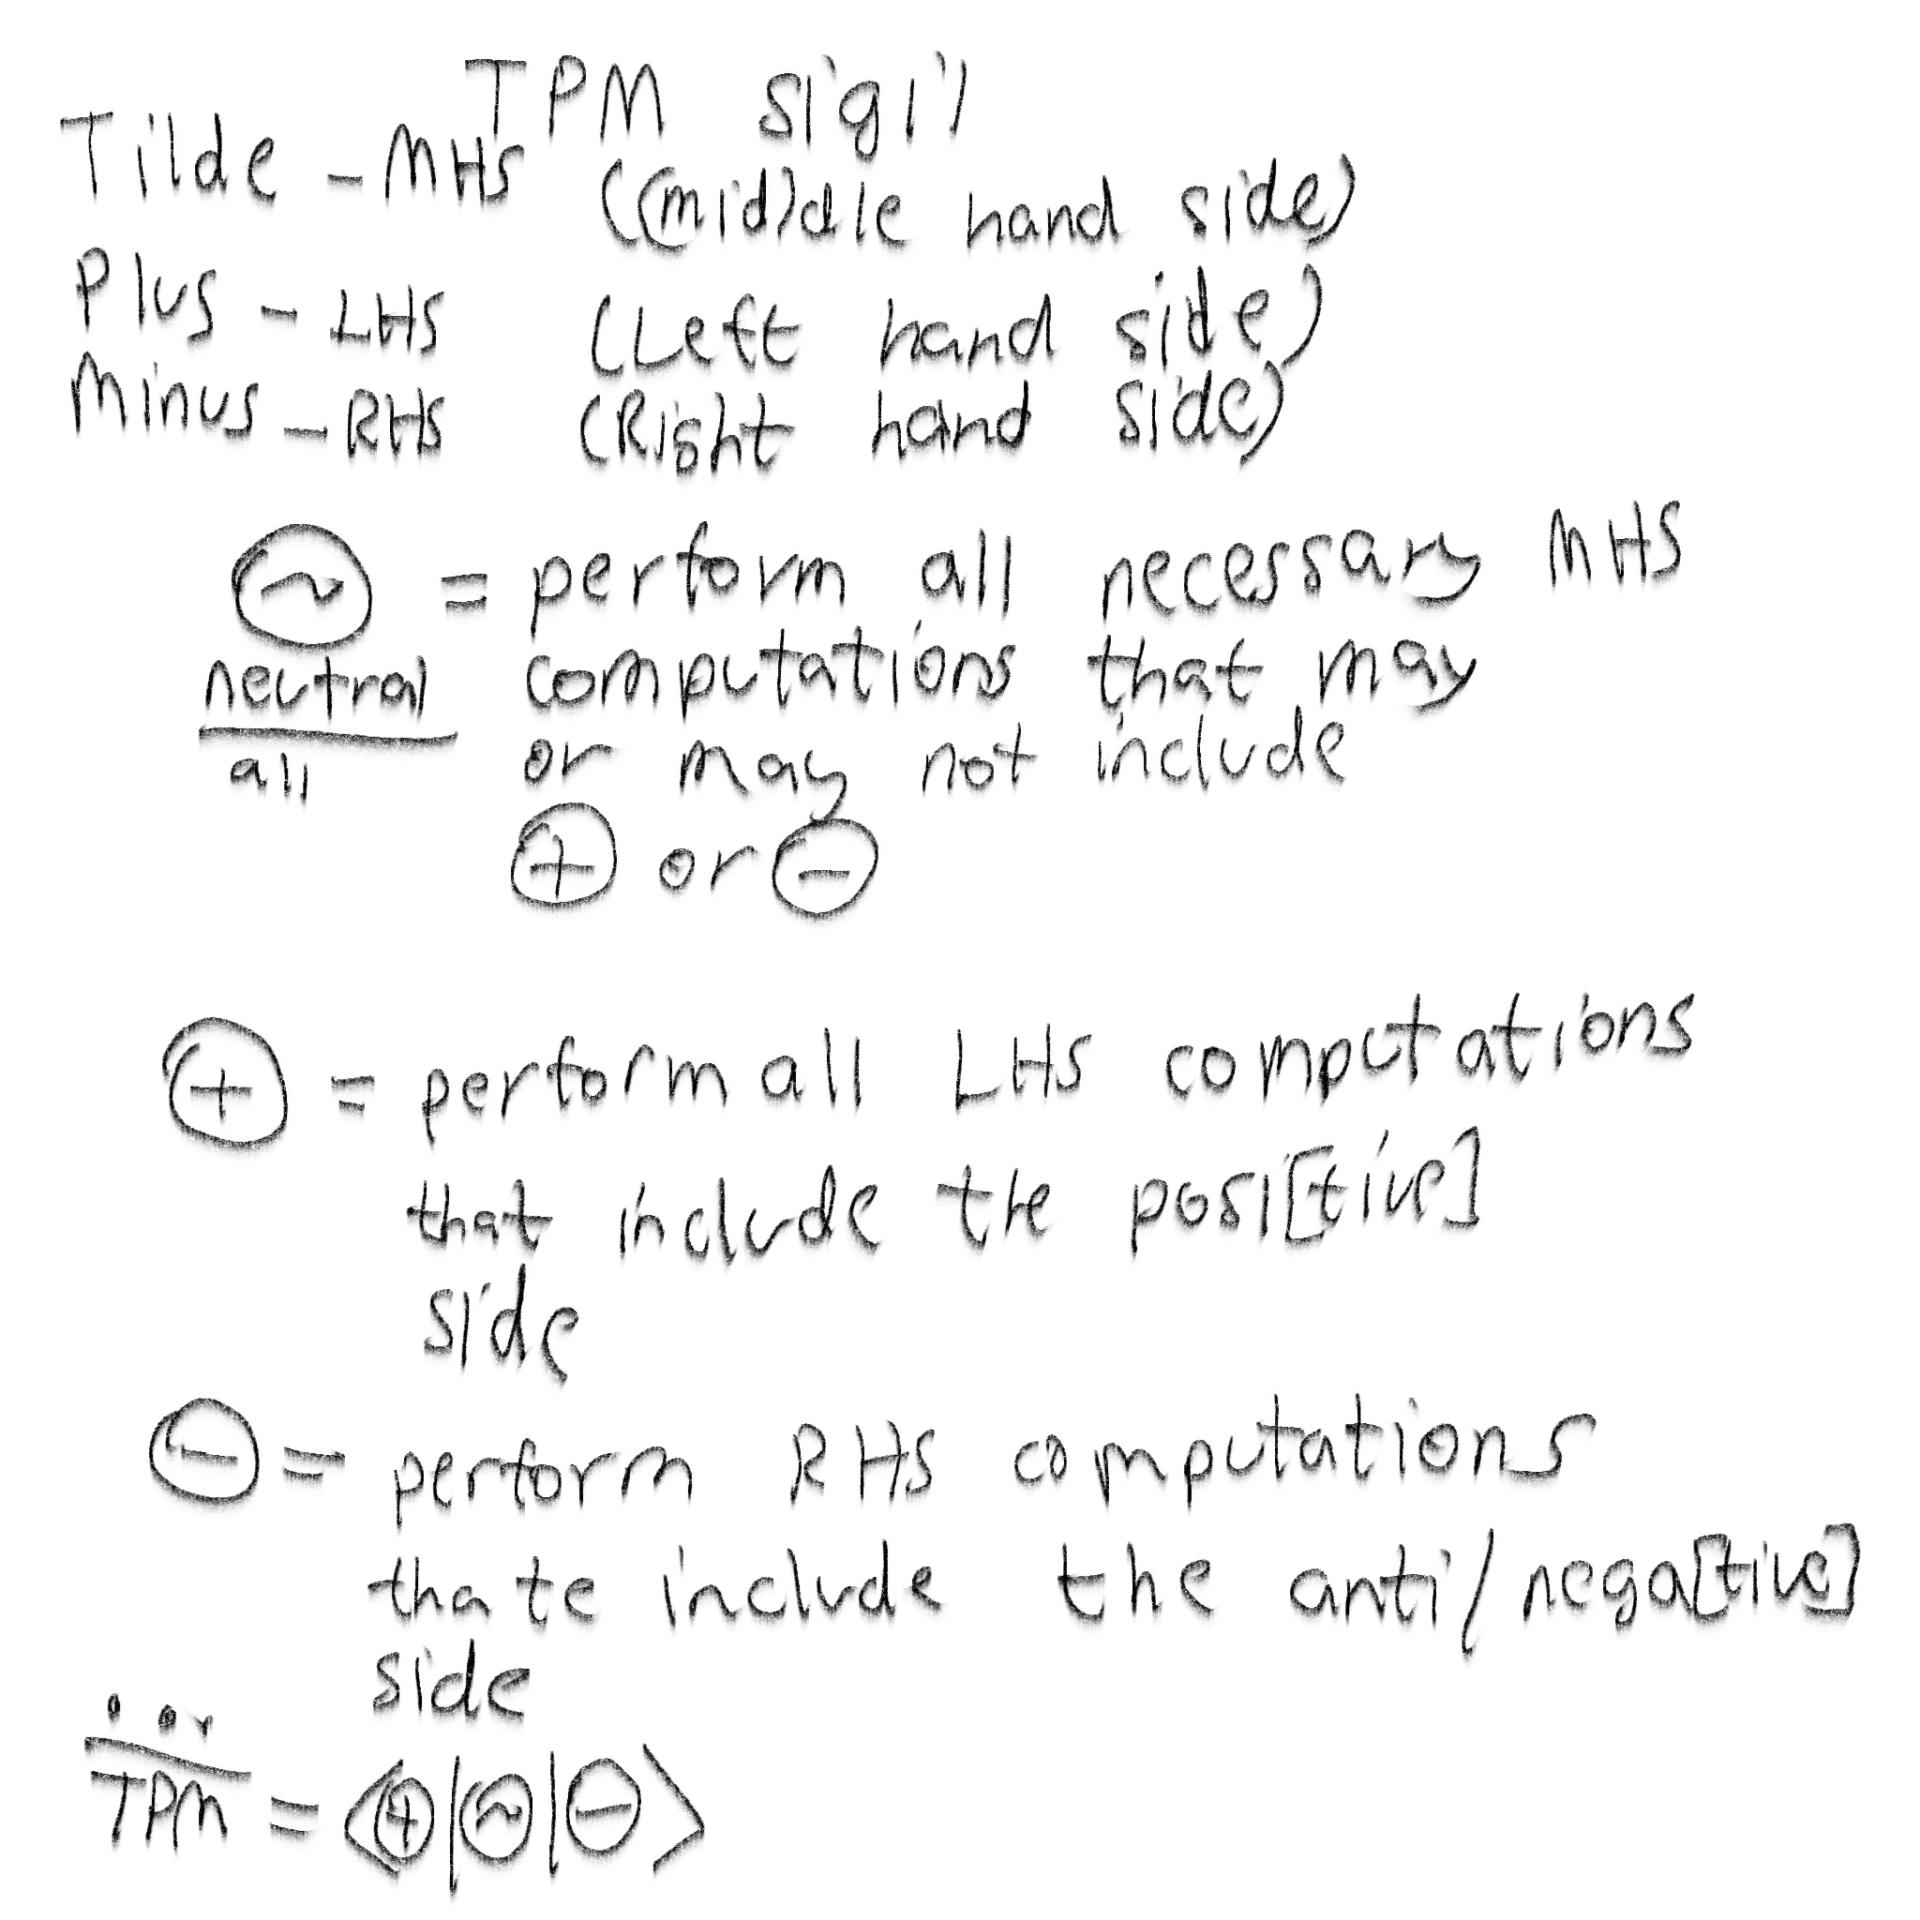 TPM sigil
Tilde - MHS ((mid)dle hand side)
Plus - LHS (Left hand side)
Minus - RHS (Right hand side)
(~) = perform all necessary MHS
neutral computations that may
all or may not include
⊕ or ⊖
⊕ = perform all LHS computations
that include the posi[tive]
side
⊖ = perform RHS computations
thate include the anti/nega[tive]
side
TPM = <⊕|(~)|⊖>